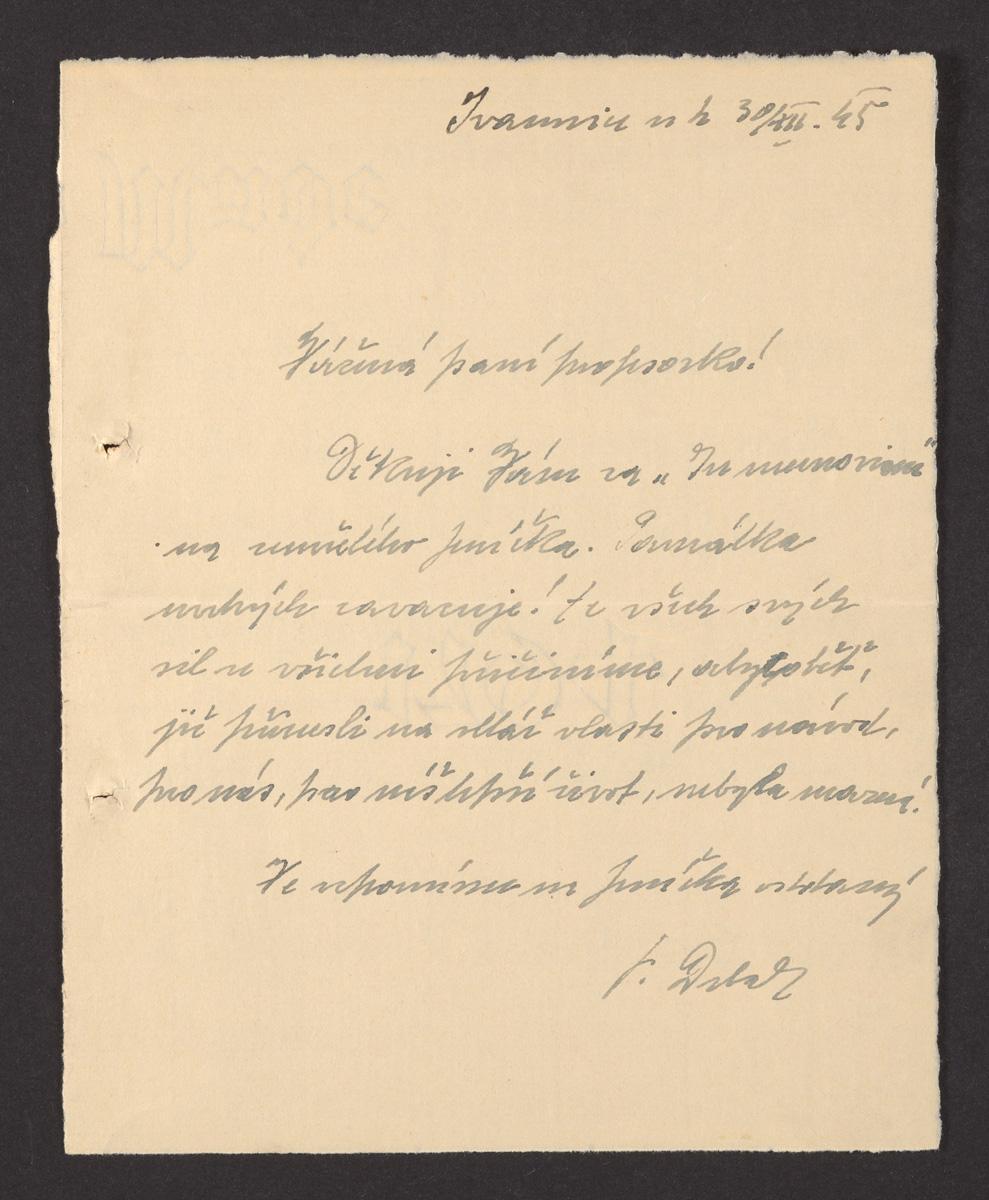 Ivančice n h 30/XII. 45
Vážená paní profesorko!
Děkuji Vám za „In memoriam"
na umělého Jeníčka. Památka
mrtvých zavazuje! Ze všech svých
sil se všichni přičiníme, aby oběť,
již přinesli na oltář vlasti pro národ,
pro nás, pro náš lepší život, nebyla marná!
Ve vzpomínce na Jeníčka oddaný
F.